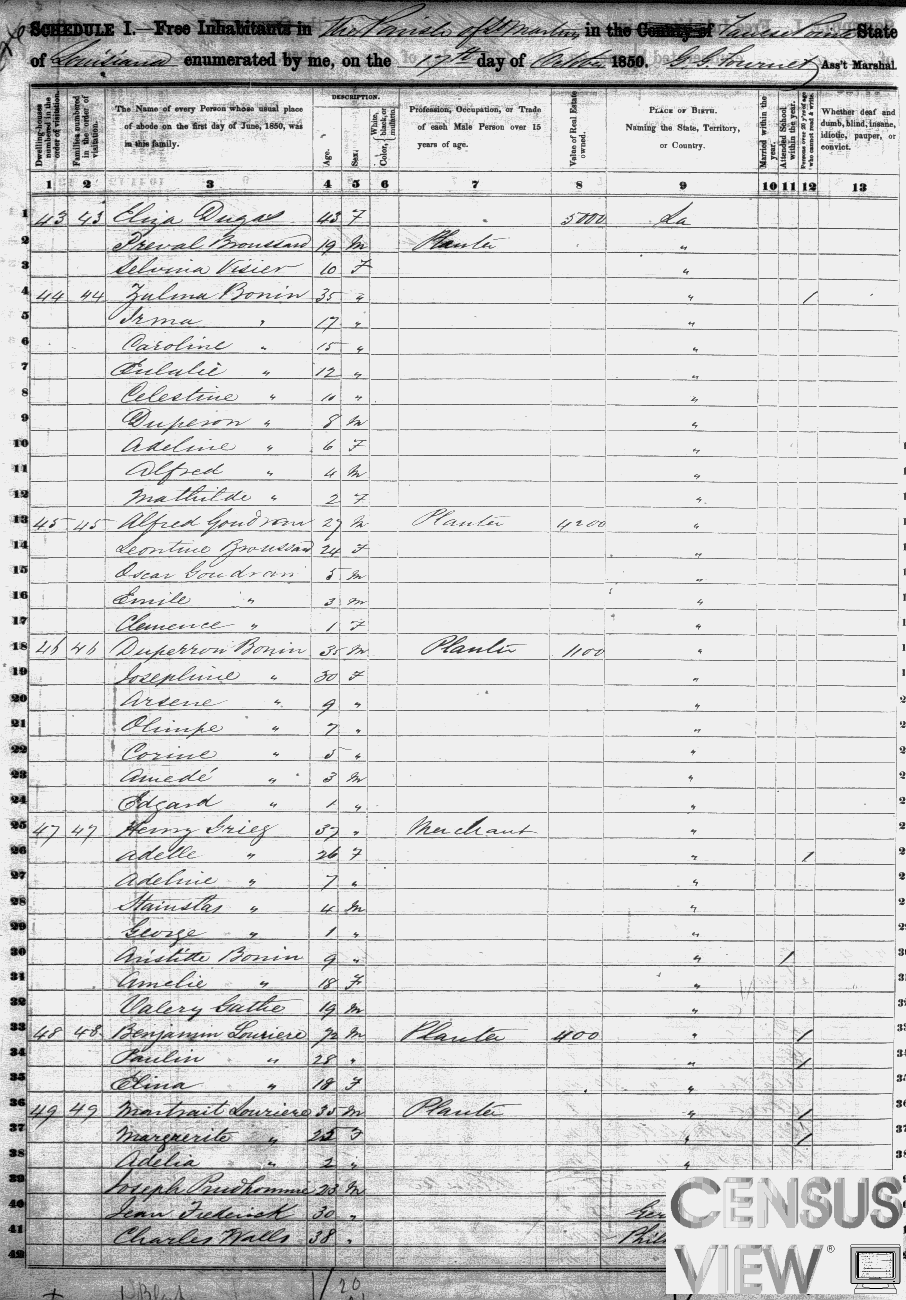 SCHEDULE I.—Free Inhabitants in the Parish of St Martin, in the County of State
of Louisiana enumerated by me, on the 17th day of October 1850. Ass't Marshal.
Dwelling-houses numbered in the order of visitation.
Families numbered in the order of visitation.
The Name of every Person whose usual place of abode on the first day of June, 1850, was in this family.
DESCRIPTION.
Age.
Sex.
Color, White, black, or mulatto.
Profession, Occupation, or Trade of each Male Person over 15 years of age.
Value of Real Estate owned.
PLACE OF BIRTH. Naming the State, Territory, or Country.
Married within the year.
Attended School within the year.
Persons over 20 y'rs of age who cannot read & write.
Whether deaf and dumb, blind, insane, idiotic, pauper, or convict.
1 2 3 4 5 6 7 8 9 10 11 12 13
1 43 43 Eliza Dugas 43 F 5000 La
2 Preval Broussard 19 M Planter "
3 Selvina Visier 10 F "
4 44 44 Zulma Bonin 35 " " 1
5 Irma " 17 " "
6 Caroline " 15 " "
7 Eulalie " 12 " "
8 Celestine " 10 " "
9 Duperon " 8 M "
10 Adeline " 6 F "
11 Alfred " 4 M "
12 Mathilde " 2 F "
13 45 45 Alfred Goudran 27 M Planter 4200 "
14 Leontine Broussard 24 F "
15 Oscar Goudran 5 M "
16 Emile " 3 M "
17 Clemence " 1 F "
18 46 46 Duperron Bonin 35 M Planter 1100 "
19 Josephine " 30 F "
20 Arsene " 9 " "
21 Olimpe " 7 " "
22 Corine " 5 " "
23 Amedé " 3 M "
24 Edgard " 1 " "
25 47 47 Henry Griez 37 " Merchant "
26 Adelle " 26 F " 1
27 Adeline " 7 " "
28 Stainslas " 4 M "
29 George " 1 " "
30 Aristide Bonin 9 " " 1
31 Amelie " 18 F "
32 Valery Gathe 19 M "
33 48 48 Benjamin Louriere 72 M Planter 400 " 1
34 Paulin " 28 " " 1
35 Elina " 18 F "
36 49 49 Martrait Louriere 35 M Planter " 1
37 Marguerite " 25 F " 1
38 Adelia " 2 " "
39 Joseph Prudhomme 23 M
40 Jean Frederick 30 " Ger
41 Charles Walls 38 " Phil
42
CENSUS
VIEW®
1/20